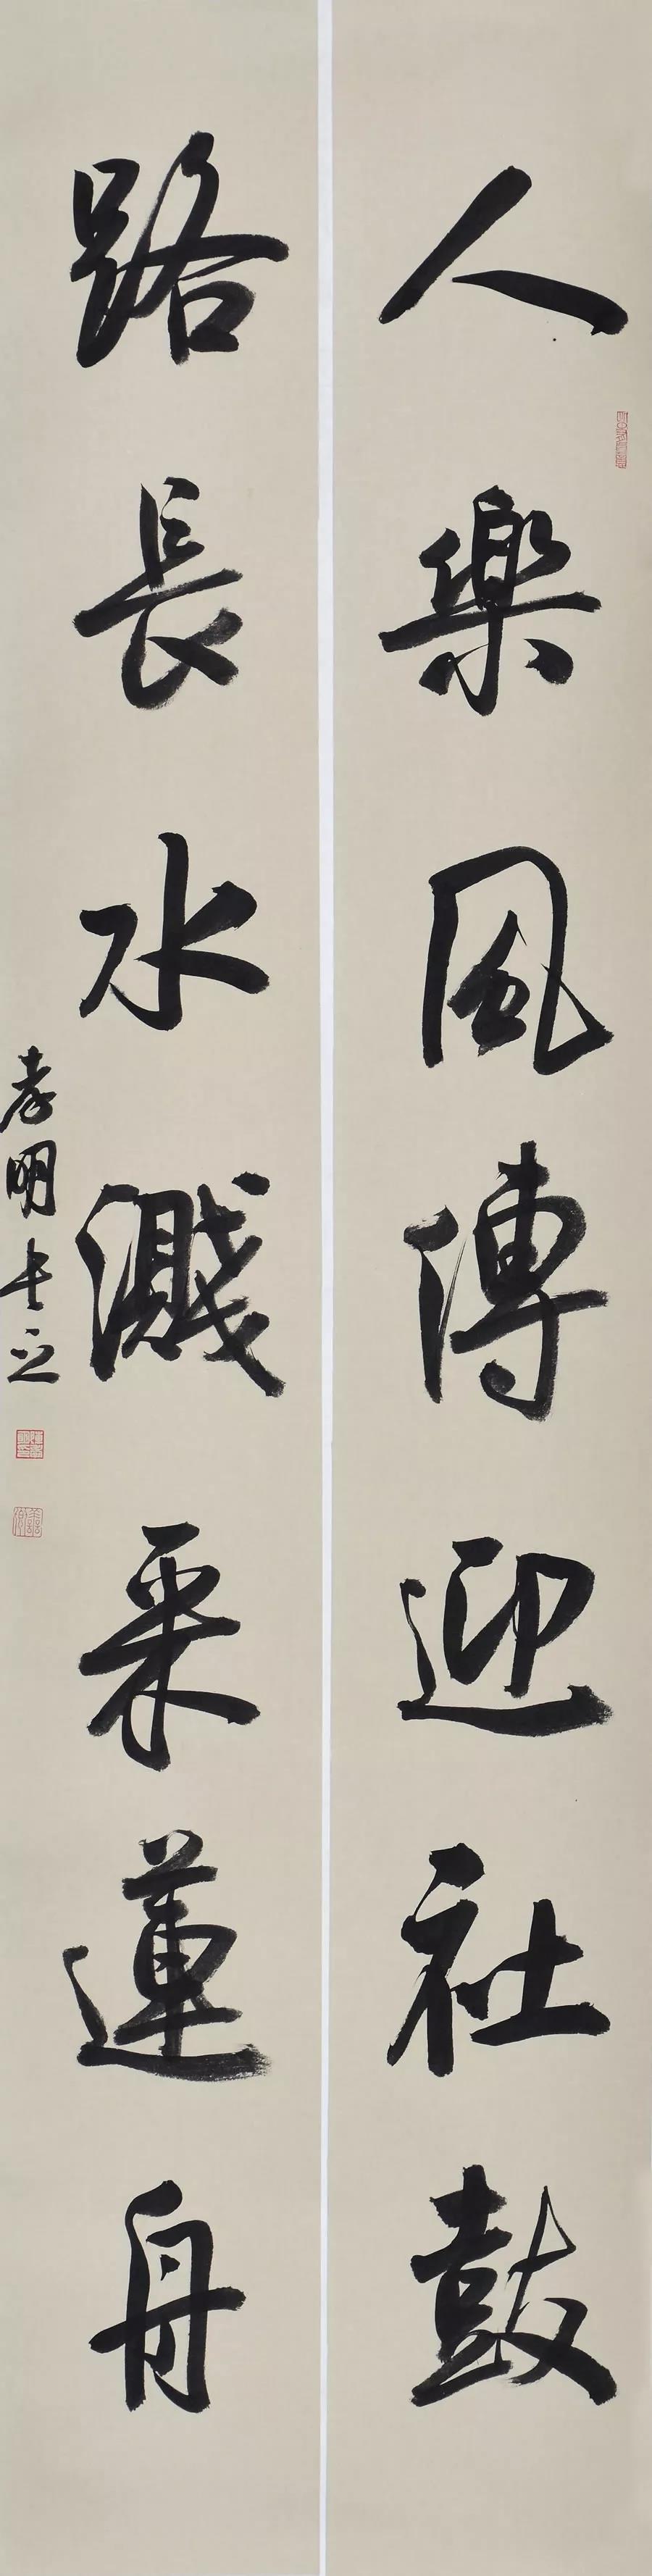 人樂風傳迎社鼓
路長水濺采蓮舟
孝明書